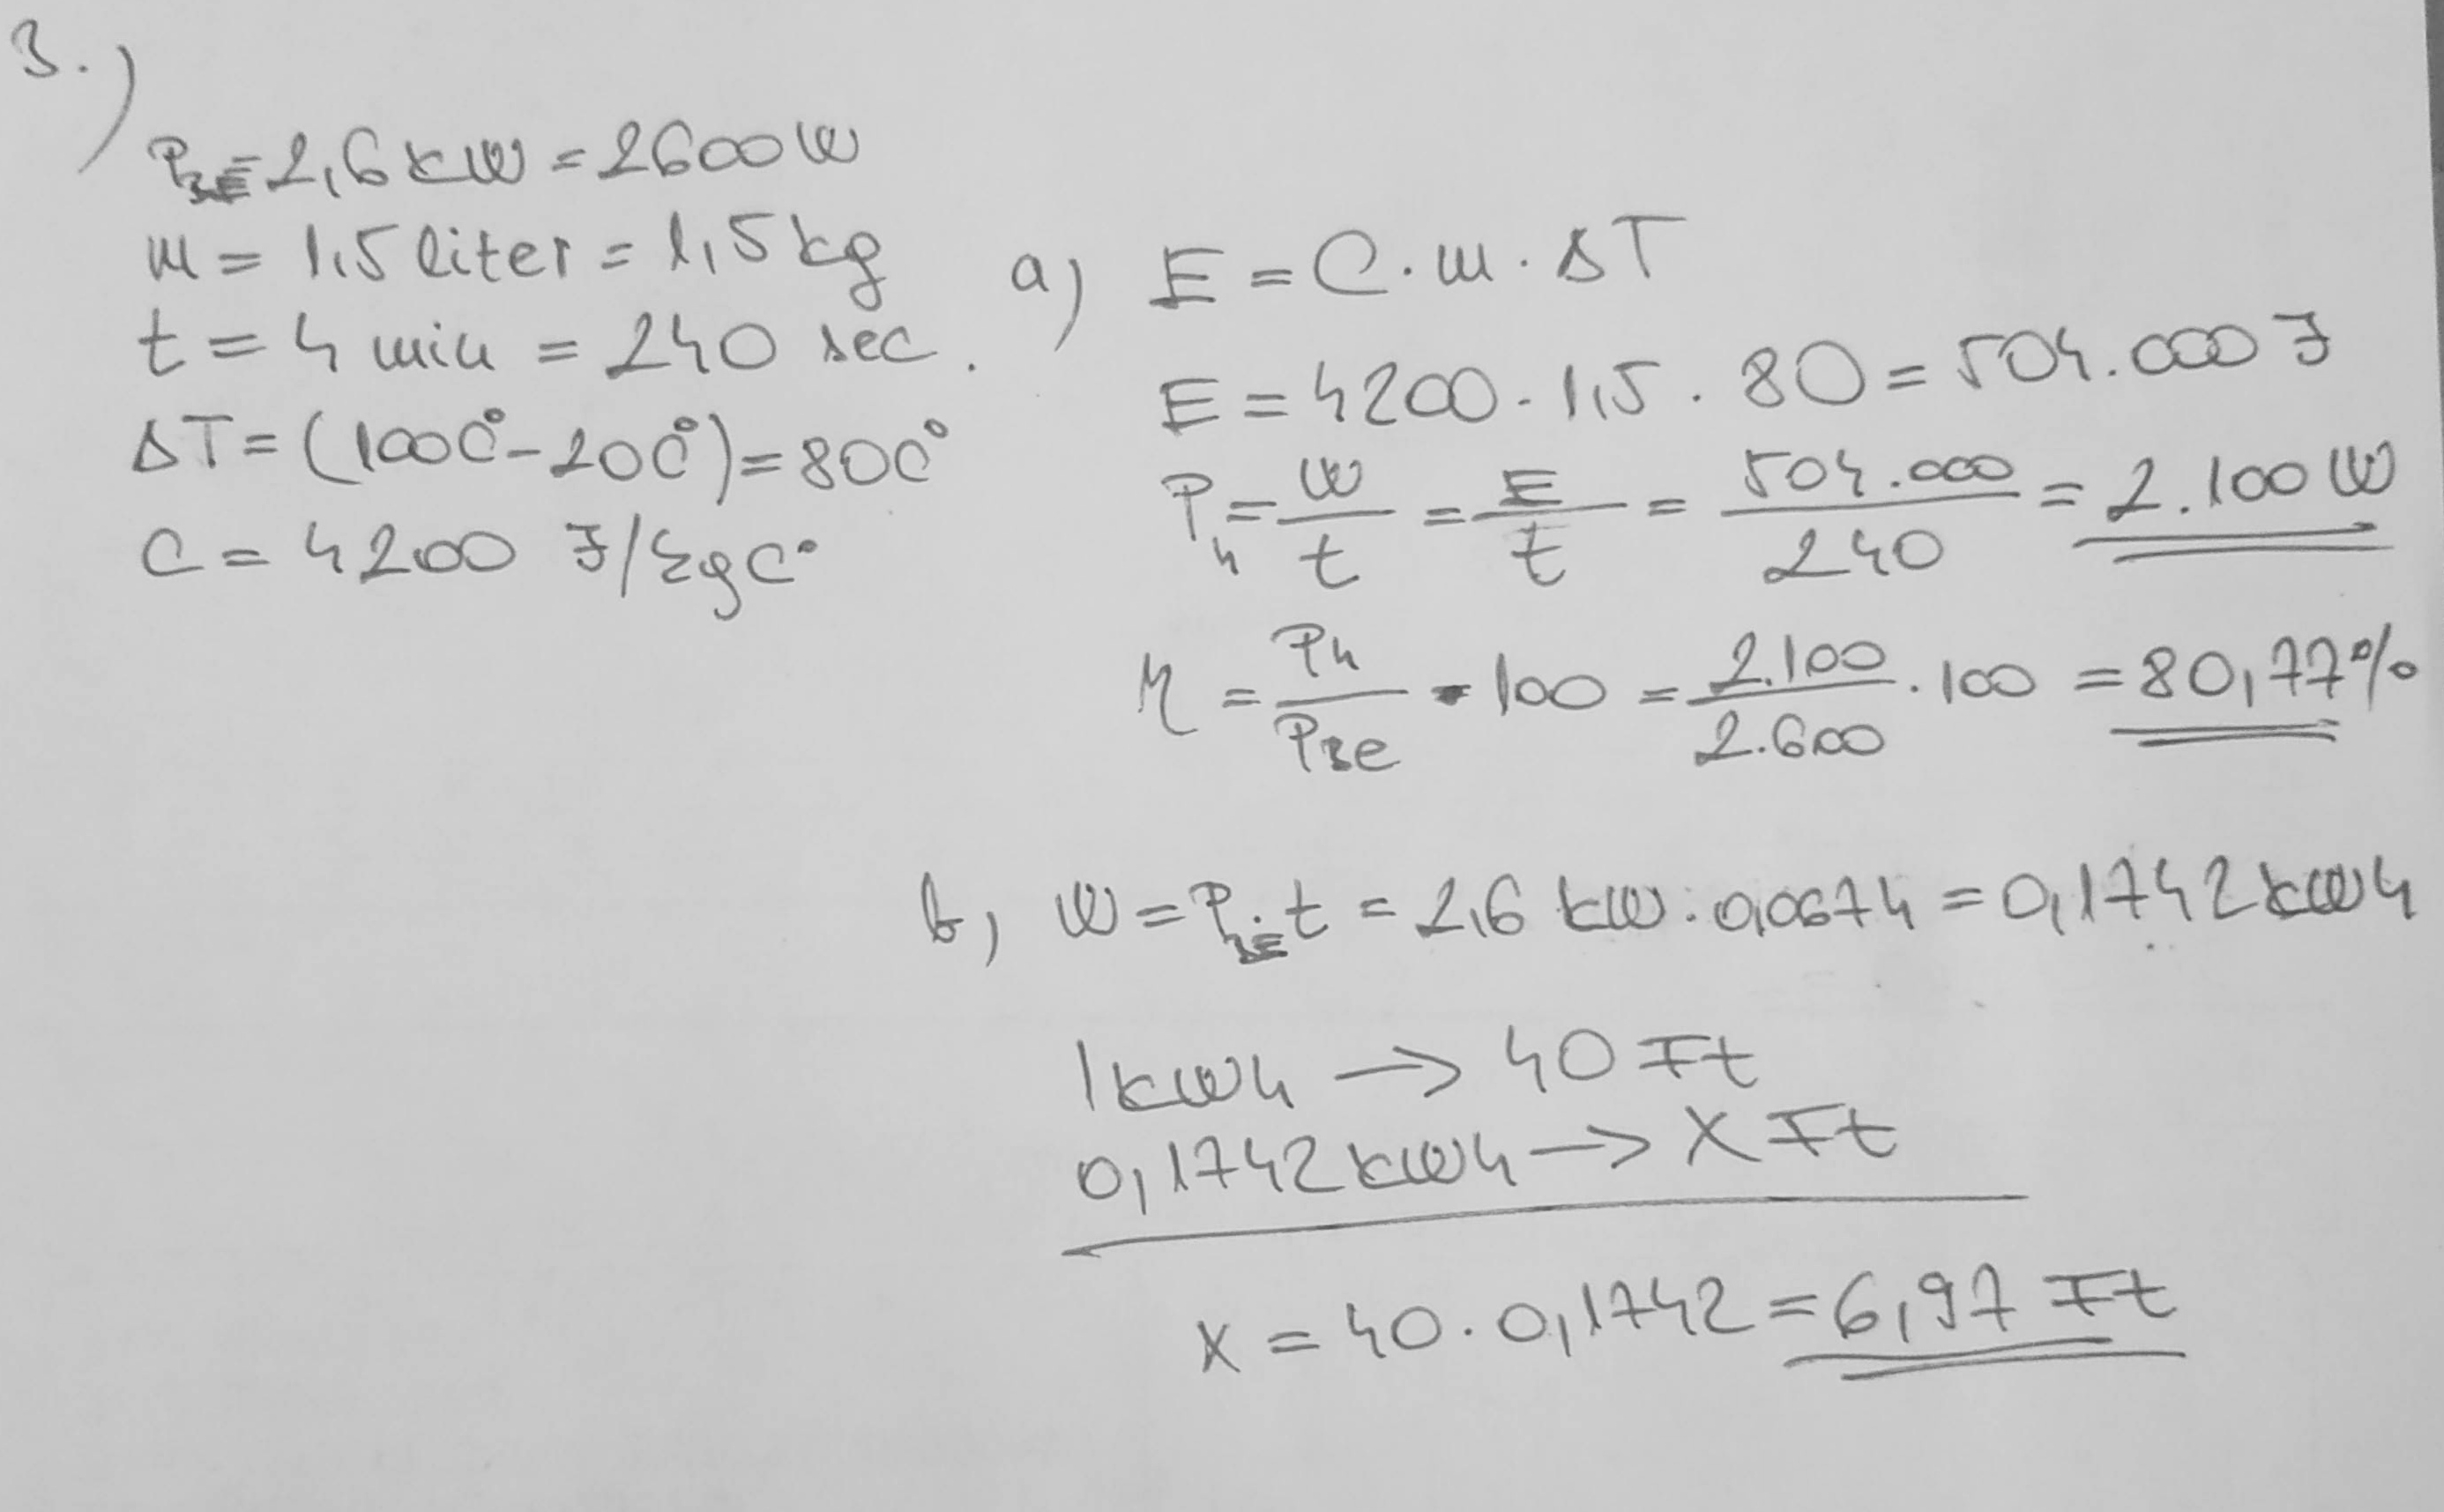 3.)
Pbe = 2,6 kW = 2600 W
m = 1,5 liter = 1,5 kg
t = 4 min = 240 sec.
ΔT = (100C° - 20C°) = 80C°
C = 4200 J/kgC°
a) E = C · m · ΔT
E = 4200 · 1,5 · 80 = 504.000 J
Ph = W/t = E/t = 504.000/240 = 2.100 W
η = Ph/Pbe · 100 = 2.100/2.600 · 100 = 80,77%
b, W = Pbe · t = 2,6 kW · 0,067h = 0,1742 kWh
1 kWh → 40 Ft
0,1742 kWh → X Ft
X = 40 · 0,1742 = 6,97 Ft